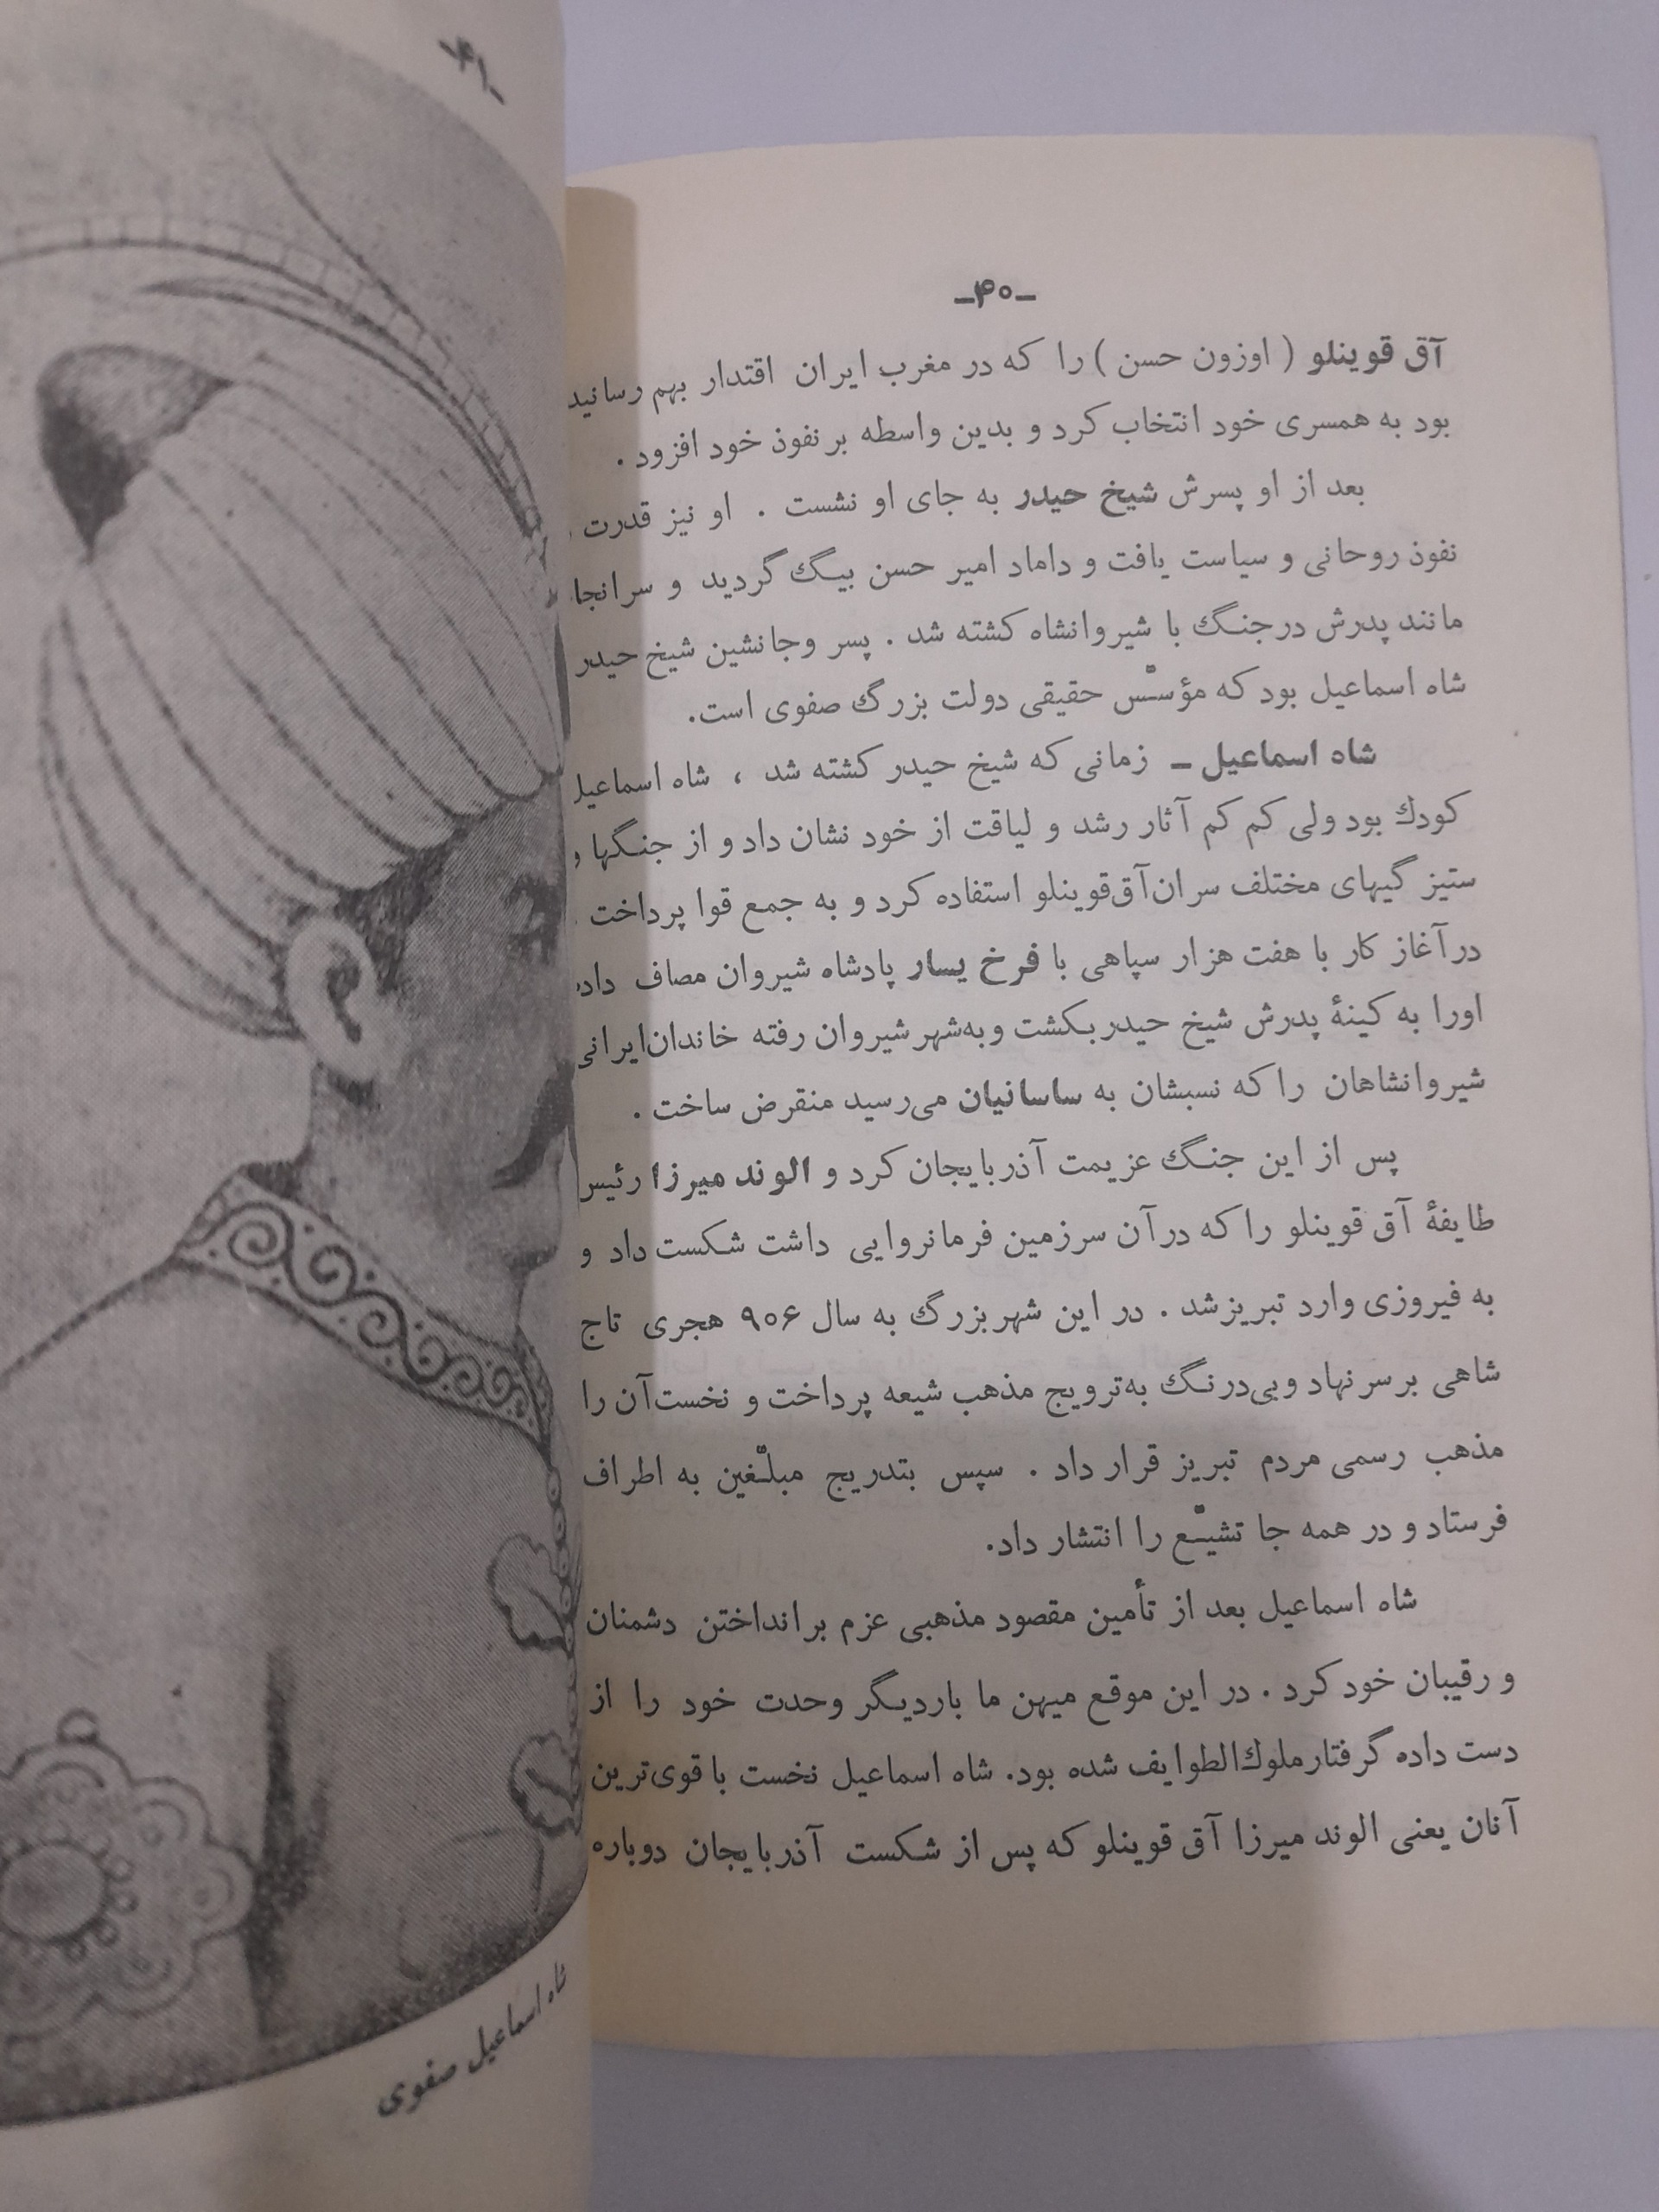 -۴۰-
آق قوینلو ( اوزون حسن ) را که در مغرب ایران اقتدار بهم رسانید
بود به همسری خود انتخاب کرد و بدین واسطه بر نفوذ خود افزود .
بعد از او پسرش شیخ حیدر به جای او نشست . او نیز قدرت
نفوذ روحانی و سیاست یافت و داماد امیر حسن بیگ گردید و سرانجا
مانند پدرش در جنگ با شیروانشاه کشته شد . پسر و جانشین شیخ حیدر
شاه اسماعیل بود که مؤسّس حقیقی دولت بزرگ صفوی است.
شاه اسماعیل – زمانی که شیخ حیدر کشته شد ، شاه اسماعیل
کودك بود ولی کم کم آثار رشد و لیاقت از خود نشان داد و از جنگها و
ستیز گیهای مختلف سران آق‌قوینلو استفاده کرد و به جمع قوا پرداخت
در آغاز کار با هفت هزار سپاهی با فرخ یسار پادشاه شیروان مصاف داد
اورا به کینهٔ پدرش شیخ حیدر بکشت و به‌شهر شیروان رفته خاندان ایرانی
شیروانشاهان را که نسبشان به ساسانیان می‌رسید منقرض ساخت .
پس از این جنگ عزیمت آذربایجان کرد و الوند میرزا رئیس
طایفهٔ آق قوینلو را که در آن سرزمین فرمانروایی داشت شکست داد و
به فیروزی وارد تبریز شد . در این شهر بزرگ به سال ۹۰۶ هجری تاج
شاهی بر سر نهاد و بی‌درنگ به‌ترویج مذهب شیعه پرداخت و نخست آن را
مذهب رسمی مردم تبریز قرار داد . سپس بتدریج مبلّغین به اطراف
فرستاد و در همه جا تشیّع را انتشار داد.
شاه اسماعیل بعد از تأمین مقصود مذهبی عزم برانداختن دشمنان
و رقیبان خود کرد . در این موقع میهن ما باردیگر وحدت خود را از
دست داده گرفتار ملوك‌الطوایف شده بود. شاه اسماعیل نخست با قوی‌ترین
آنان یعنی الوند میرزا آق قوینلو که پس از شکست آذربایجان دوباره
-۴۱-
شاه اسماعیل صفوی